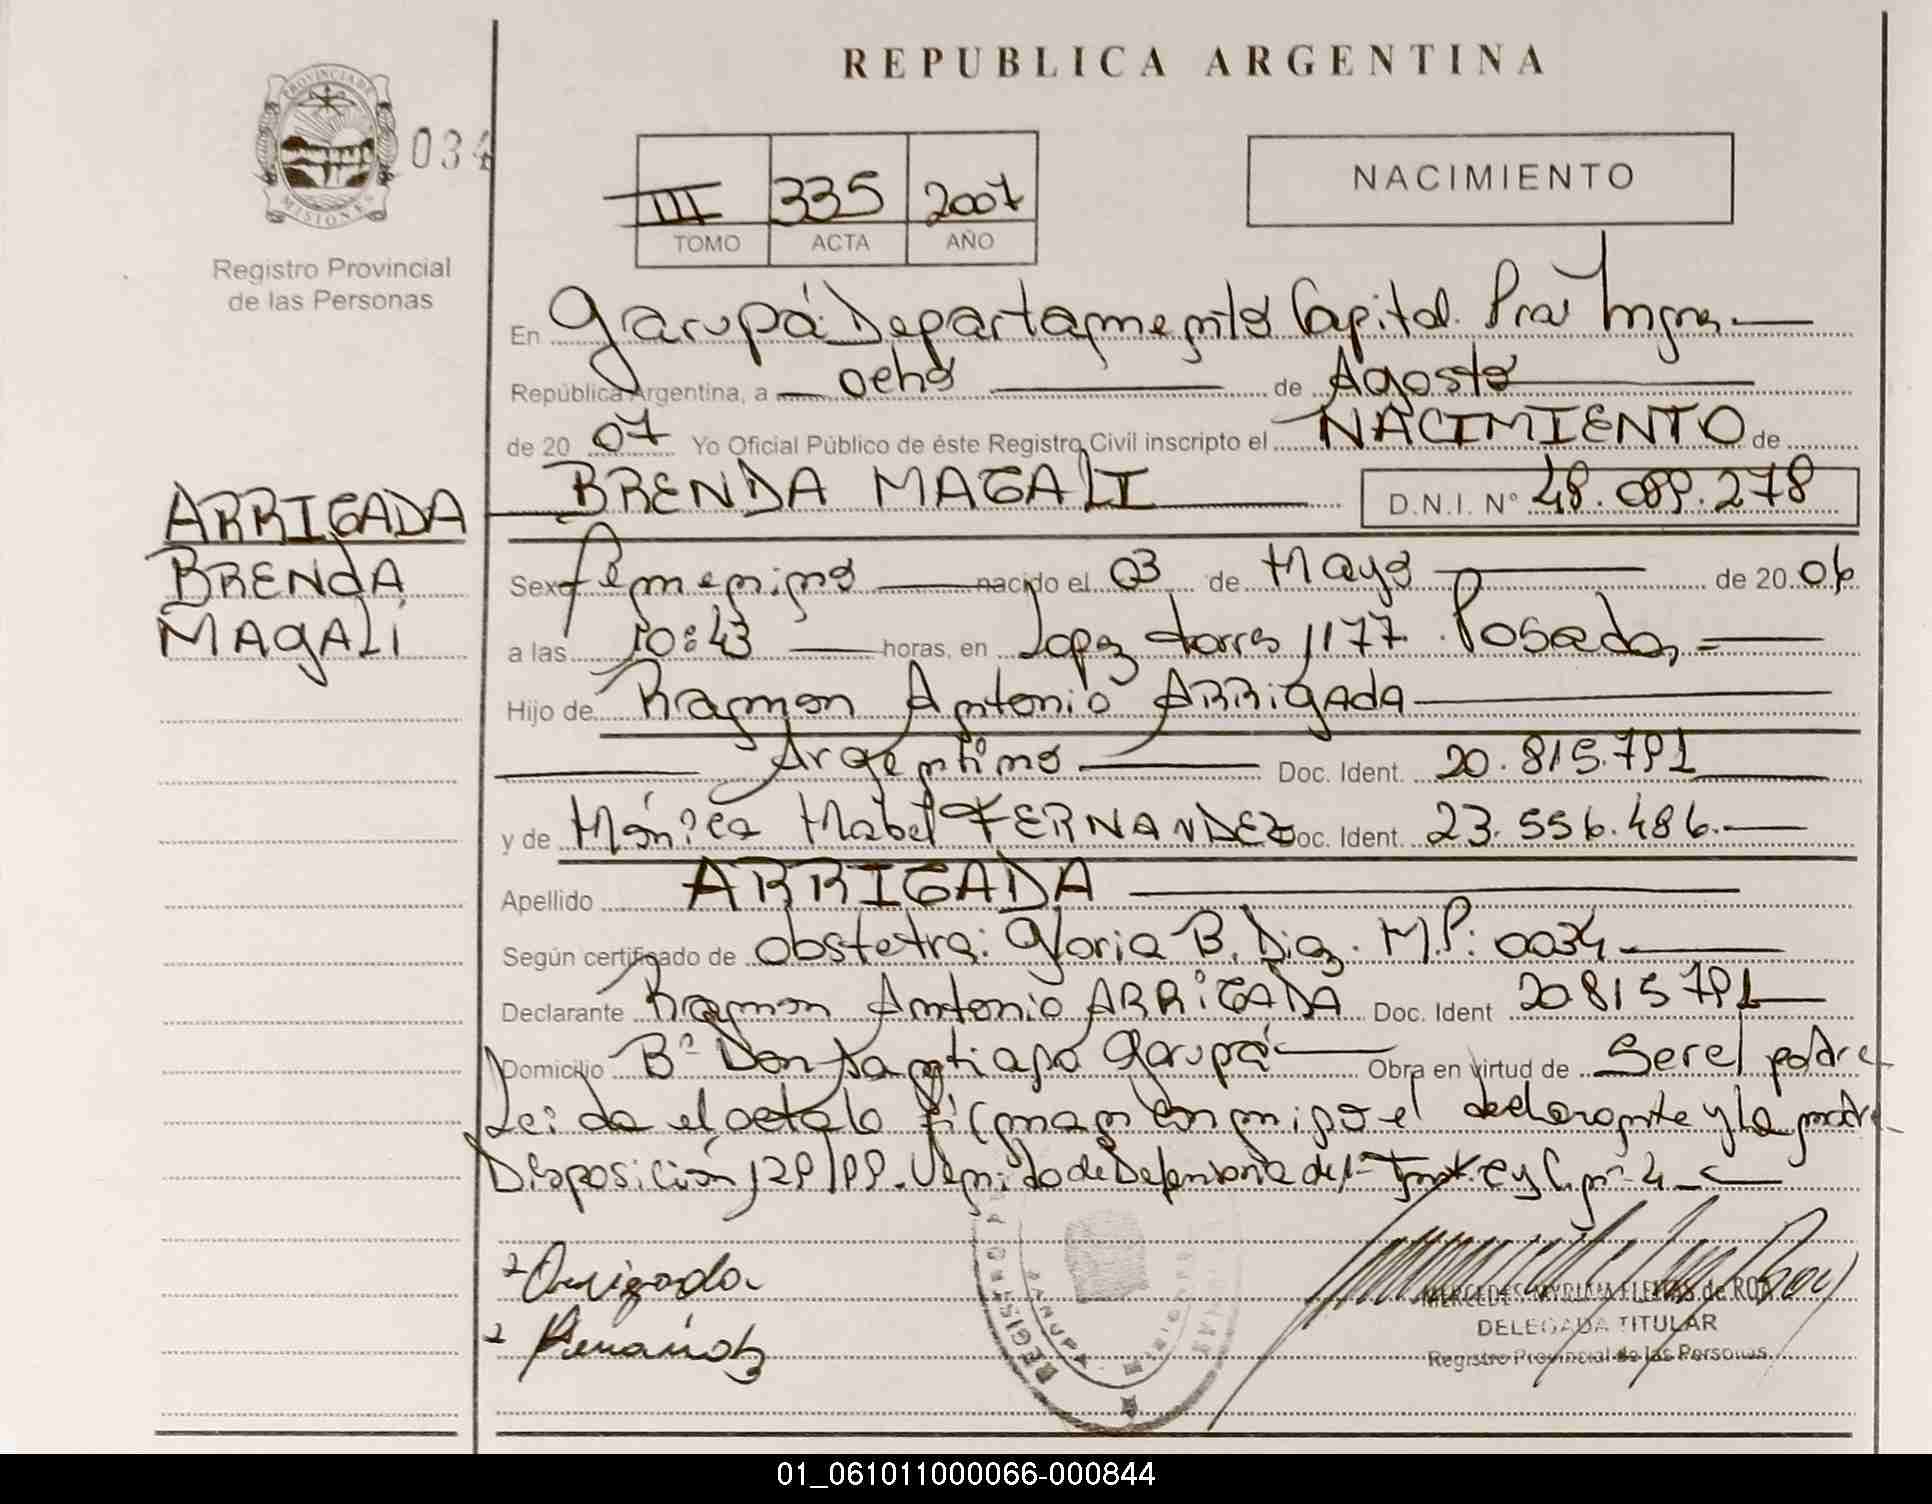 REPUBLICA ARGENTINA
PROVINCIA DE MISIONES
034
Registro Provincial
de las Personas
III 335 2007
TOMO ACTA AÑO
NACIMIENTO
En Garupá Departamento Capital. Pcia Mnes.
República Argentina, a ocho de Agosto
de 20 07 Yo Oficial Público de éste Registro Civil inscripto el NACIMIENTO de
BRENDA MAGALI D.N.I. N° 48.089.278
ARRIGADA
BRENDA
MAGALI
Sexo femenino nacido el 03 de Mayo de 20 06
a las 10:43 horas, en Lopez torres 1177. Posadas
Hijo de Ramon Antonio ARRIGADA
Argentino Doc. Ident. 20.815.791
y de Mónica Mabel FERNANDEZ Doc. Ident. 23.556.486.
Apellido ARRIGADA
Según certificado de obstetra: Gloria B. Diaz. M.P: 0034
Declarante Ramon Antonio ARRIGADA Doc. Ident 20815791
Domicilio Bº Don Santiago Garupá Obra en virtud de Ser el padre
Leida el acta la firman conmigo el declarante y la madre
Disposición 129/99. Venido de Defensoria del Inst. C y C. nº 4
Arrigada
Fernandez
REGISTRO
GARUPA
MISIONES
MERCEDES MYRIAM FLEITAS de ROA
DELEGADA TITULAR
Registro Provincial de las Personas
01_061011000066-000844